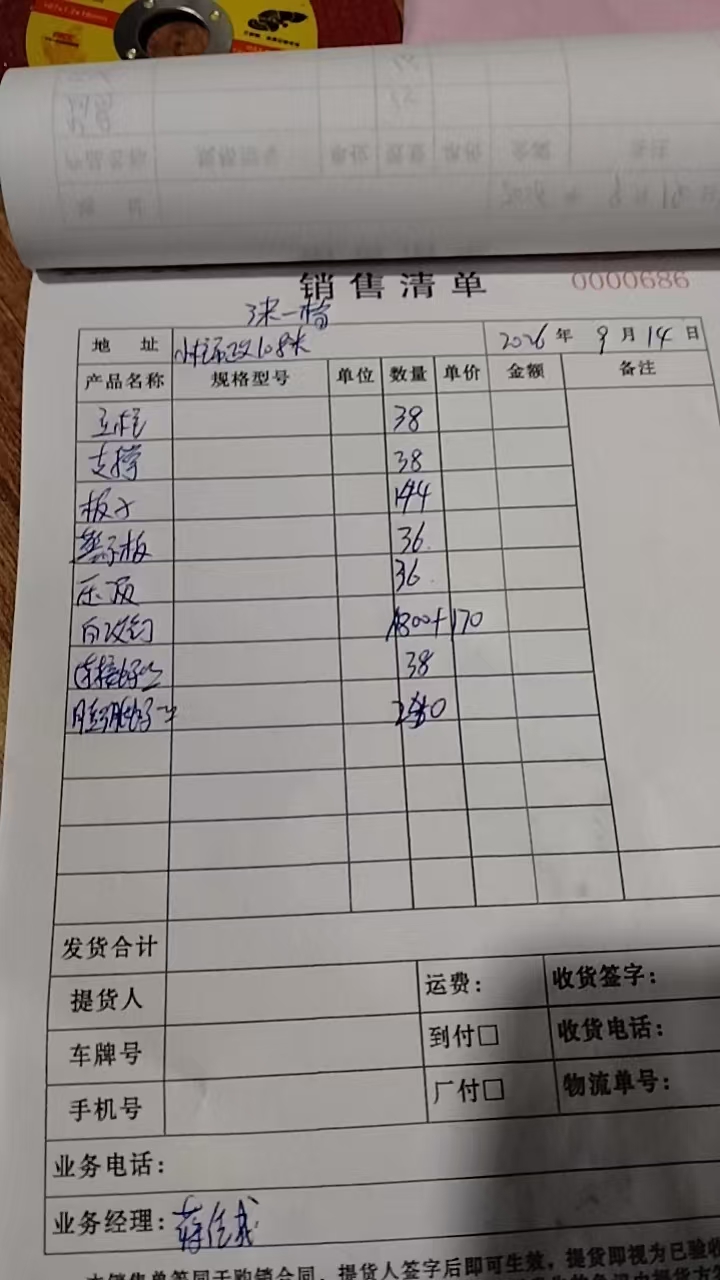 销售清单 0000686
3米一档
地 址 108米 2026年9月14日
产品名称 规格型号 单位 数量 单价 金额 备注
立柱 38
支撑 38
板子 144
垫子板 36
压顶 36
自攻钉 1800+170
连接 38
发货合计
提货人 运费： 收货签字：
车牌号 到付□ 收货电话：
手机号 厂付□ 物流单号：
业务电话：
业务经理：
本销售单等同于购销合同，提货人签字后即可生效，提货即视为已验收